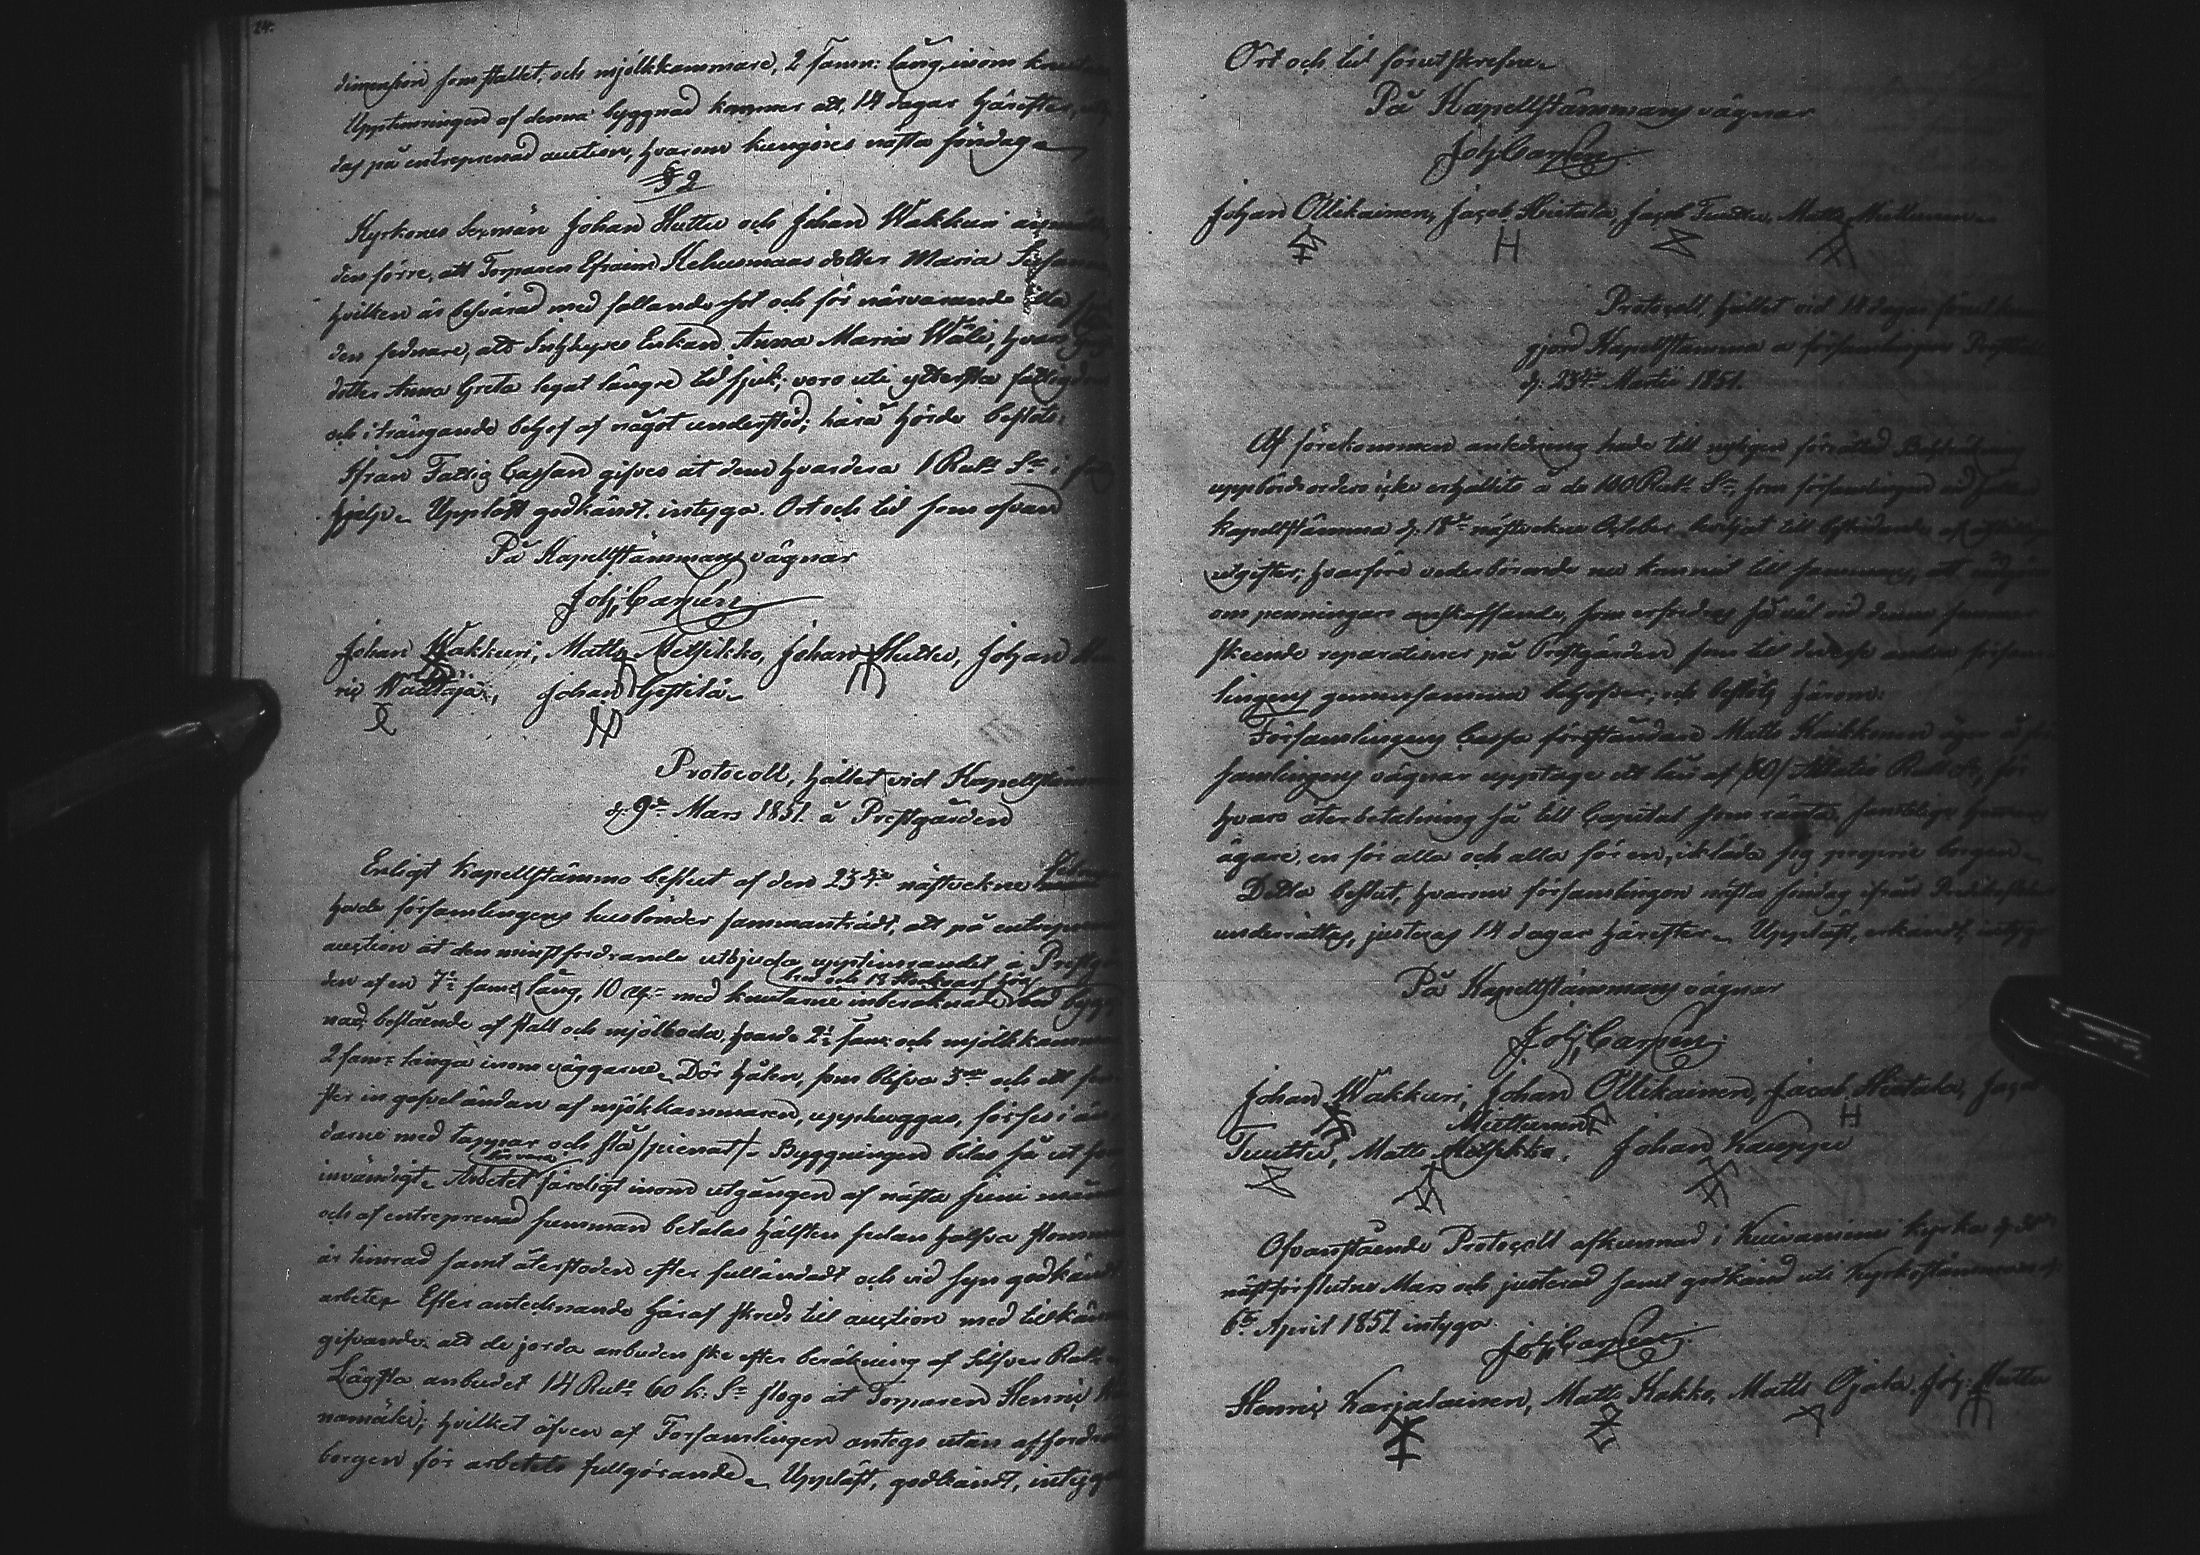 24.
dimension som stallet, och mjölkkammare, 2 famn: lång inom knutarne
Upptimringen af denna byggnad kommer att, 14 dagar härefter,
das på entreprenad auction, hvarom kungöres nästa söndag
§ 2
Kyrkones Sexmän Johan Huttu och Johan Wakkuri anmälte
den förre, att Torparen Efraim Kehusmaas dotter Maria
hvilken är besvärad med fallande sot och för närvarande illa
den sednare, att Inhyses Enkan Anna Maria Wäli, hvars
dotter Anna Greta legat längre tid sjuk; voro uti yttersta fattigdom
och i trängande behof af något understöd; härå hördes beslöts:
Ifrån Fattig Cassan gifves åt dem hvardera 1 Rub: Sr i
hjelp. Uppläst godkändt intyga. Ort och tid som ofvan
På Kapellstämmans vägnar
Joh: Carpen
Johan Wakkuri, Matts Metsikko, Johan Huttu, Johan
ric Wäätäjä, Johan Hettilä
Protocoll, hållet vid Kapellstämma
d. 9de Mars 1851 å Prestgården
Enligt Kapellstämmo beslut af den 23dje nästvekne
hade församlingens husbönder sammanträdt, att på entreprenad
auction åt den minstfordrande utbjuda upptimrandet å Prestgår
den af en 7½ famn: lång, 10 al: med knutarne inberäknade bred bygg
nad, bestående af stall och mjölboda, hvardera 2½ famn: och mjölkkammare
2 famn: långa inom väggarne. Dörhålen, som blifva 3ne och ett fön
ster in gafveländan af mjölkkammaren, upphuggas, förses i än
darne med tappar och slå/pienat/. Byggningen bilas så ut som
invändigt. Arbetet färdigt inom utgången af nästa Juni månad
och af entreprenad summan betalas hälften sedan halfva stommen
är timrad samt återstoden efter fulländadt och vid syn godkändt
arbete. Efter antecknande häraf skreds till auction med tillkänna
gifvande, att de gjorda anbuden ske efter beräkning af Silfver Rub
Lägsta anbudet 14 Rub: 60 k. Sr slogs åt Torparen Henric
namäki; hvilket äfven af Församlingen antogs utan affordran
borgen för arbetets fullgörande. Uppläst, godkändt, intyga
Ort och tid förutskrefven
På Kapellstämmans vägnar
Joh: Carpen
Johan Ollikainen, Jacob Hietala, Jacob Tuuttu, Matts Miettunen
Protocoll, hållet vid 14 dagar förut kun
gjord Kapellstämma å församlingens Prestgård
d. 23dje Martii 1851.
Af förekommen anledning hade till
uppbördsorden icke erhållits å de 100 Rub: Sr, som församlingen vid
Kapellstämma d. 18de nästvekne October beviljat till bestridande af
utgifter; hvarföre vederbörande nu kommit till sammans, att rådgöra
om penningars anskaffande, som erfordras så väl vid denna sommar
skeende reparationer på Prestgården som till diverse andra försam
lingens gemensamma behofver; och beslöts härom:
Församlingens Cassa föreståndare Matts Kaikkonen äger å för
samlingens vägnar upptaga ett lån af /50/ Rub Sr, för
hvars återbetalning så till Capital som ränta, samtelige hemmans
ägare, en för alla och alla för en, ikläda sig proprie borgen.
Detta beslut, hvarom församlingen nästa söndag ifrån Predikstolen
underrättas, justeras 14 dagar härefter. Uppläst, erkändt, intyga
På Kapellstämmans vägnar
Joh: Carpen
Johan Wakkuri, Johan Ollikainen, Jacob Hietala, Jacob
Miettunen
Tuuttu, Matts Metsikko, Johan Kauppi
Ofvanstående Protocoll afkunnad i Kuivaniemi kyrka d. 30de
nästförflutne Mars och justerad samt godkänd uti Kyrkostämman d.
6te April 1851 intyga
Joh: Carpen
Henric Karjalainen, Matts Hakko, Matts Ojala, Joh: Huttu